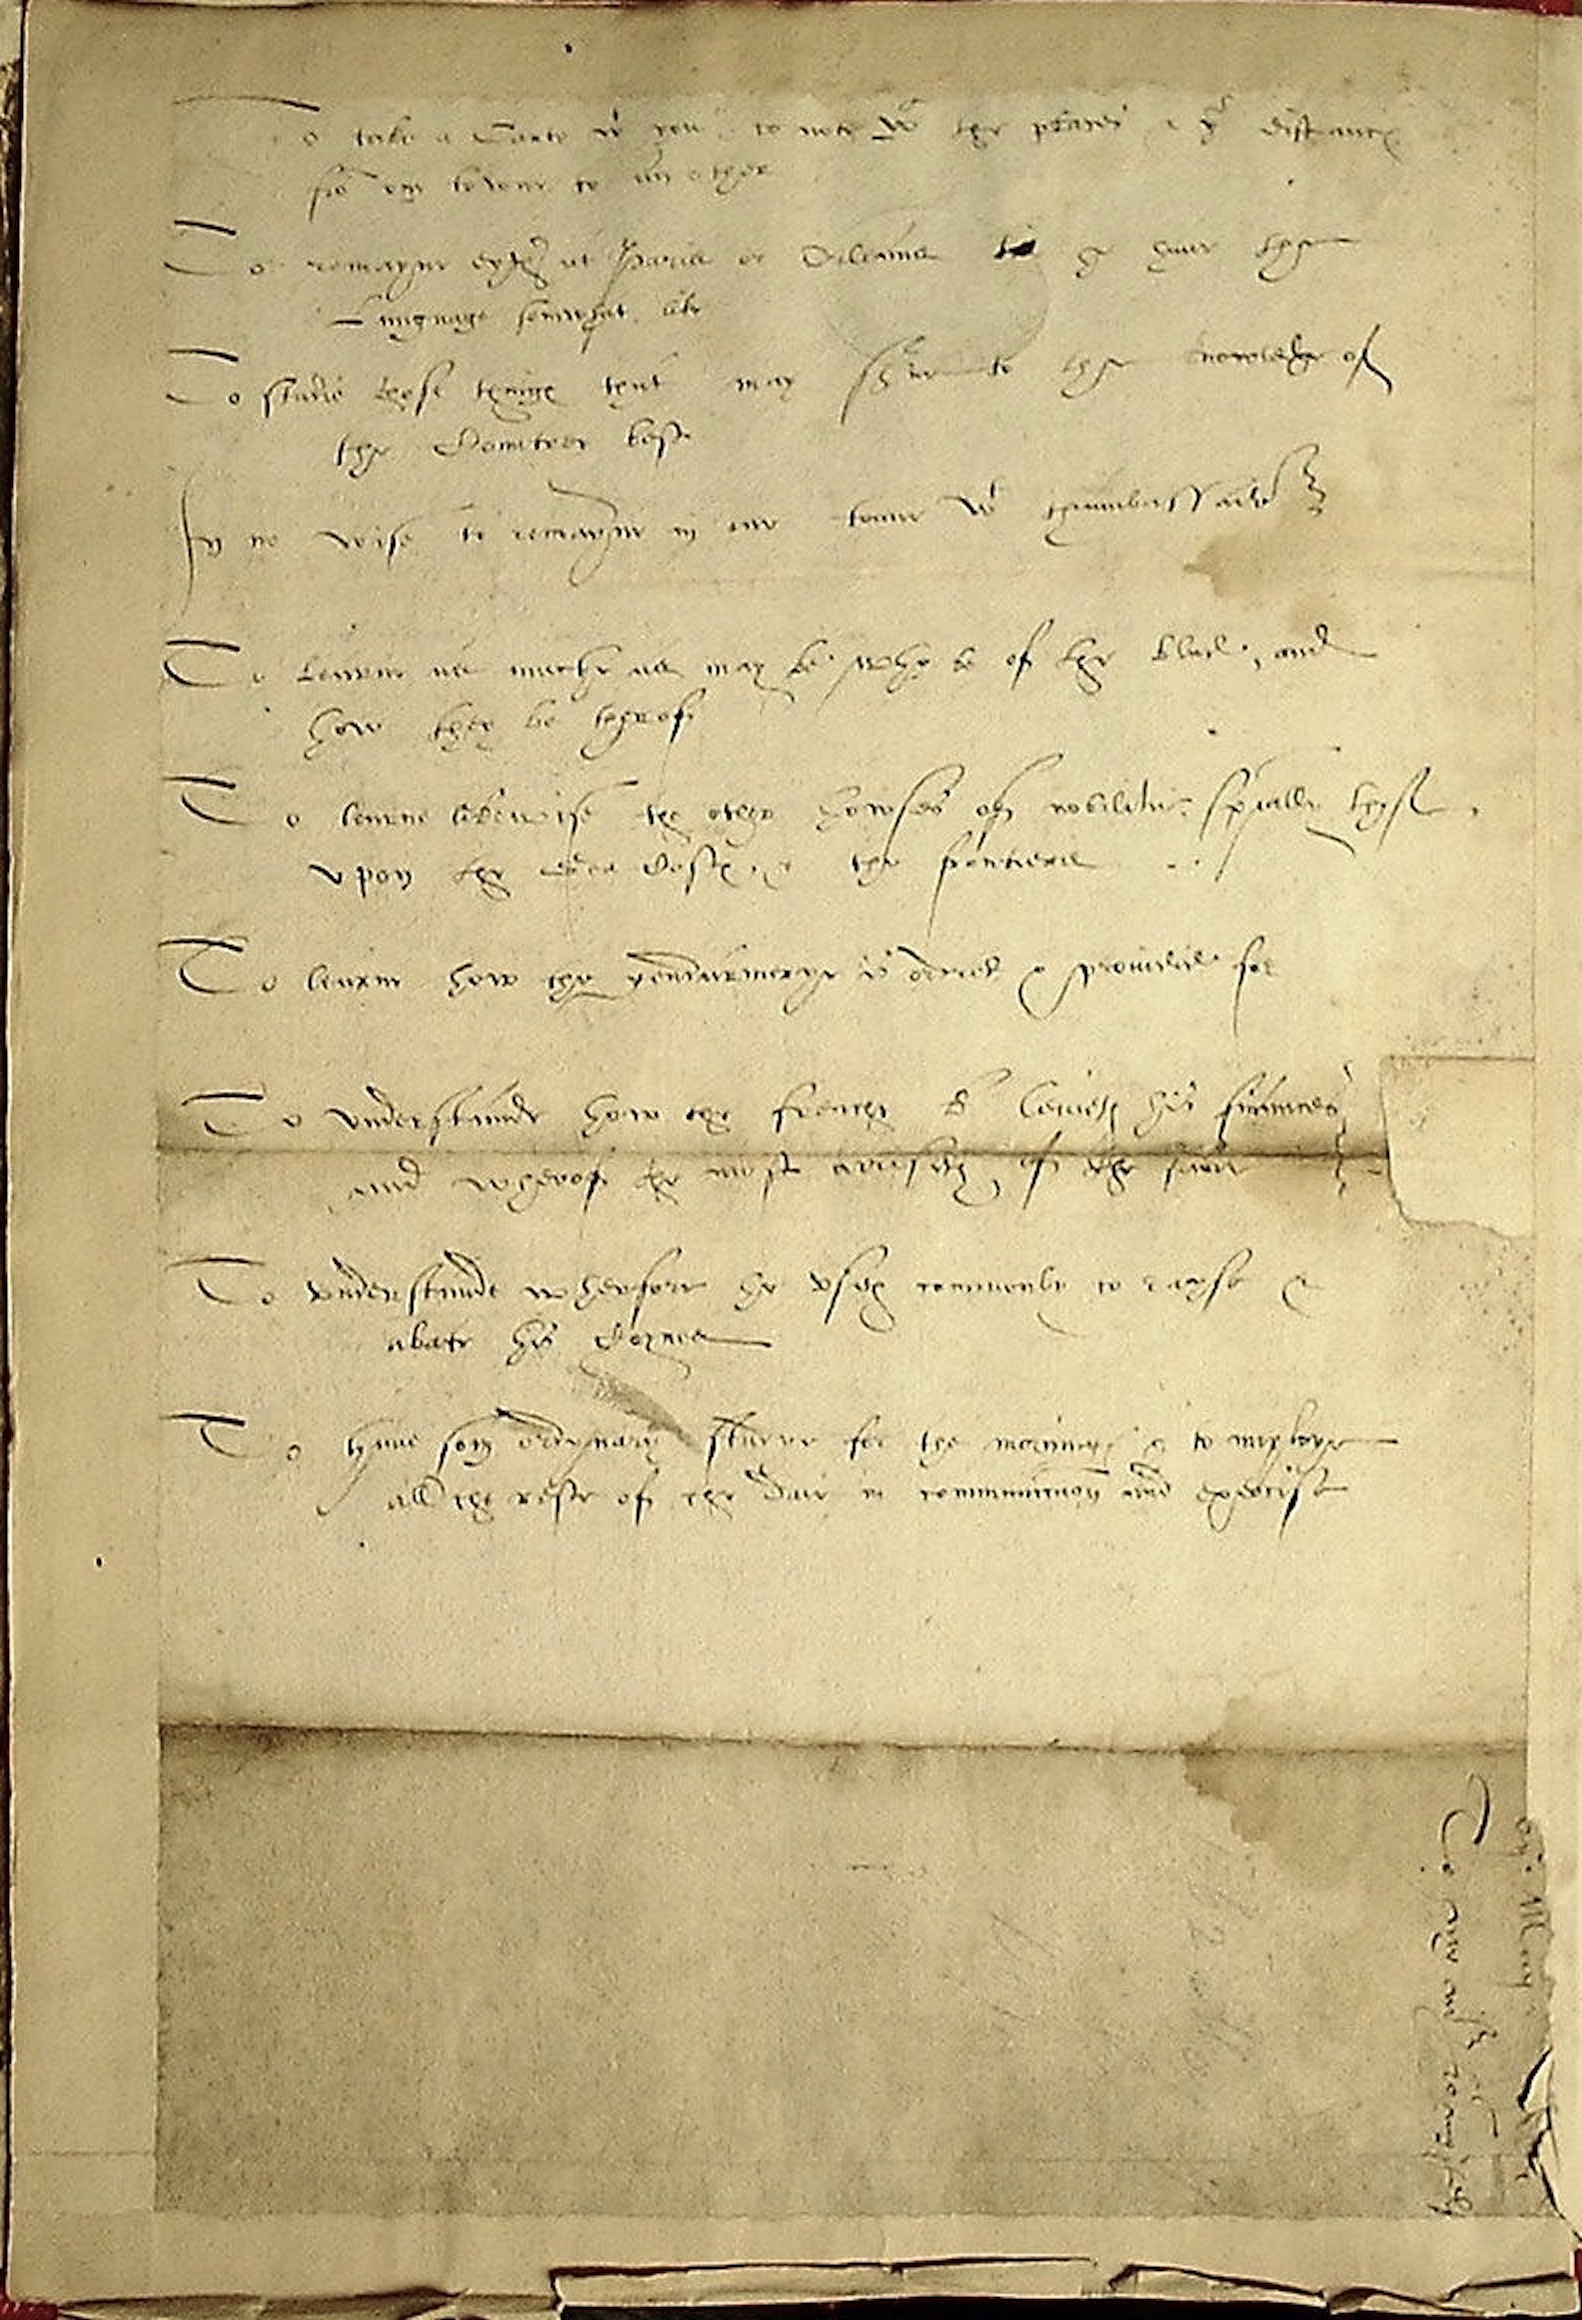 To take a Carte wt you to note wt the places & ye distance
fro on towne to an other
To remayne eyther at Paris or Orleans til ye haue the
Language somwhat like
To studie those things that may serue to the knowledge of
the Countree best
In no wise to remayne in one towne wt thambassador
To learne as muche as may be who be of the blud, and
how they be therof
To learne likewise the other howses of nobilitie, specially those
vpon the Sea Coste, & the frontiers
To learne how the gendarmerye is ordred & prouided for
To vnderstande how the french K leuieth his finances
and wherof the most ariseth of the same
To vnderstande wherfore he vseth commonly to rayse &
abate his Coynes
To haue som ordynary studye for the mornings & to imploye
all the reste of the daie in communication and exercise